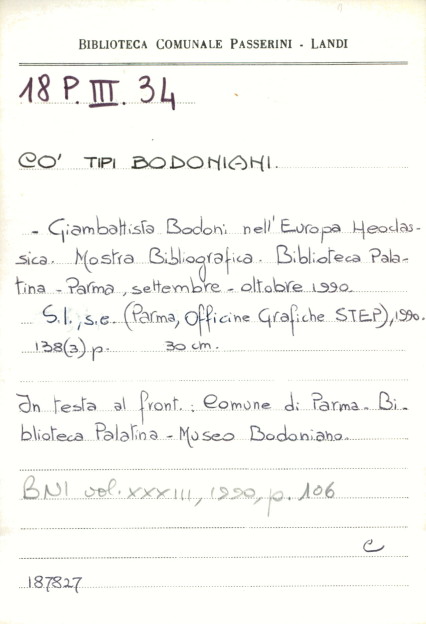 BIBLIOTECA COMUNALE PASSERINI - LANDI
18 P. III. 34
CO' TIPI BODONIANI.
- Giambattista Bodoni nell'Europa Neoclas-
sica. Mostra Bibliografica. Biblioteca Pala-
tina - Parma, settembre - ottobre 1990.
S.l., s.e. (Parma, Officine Grafiche STEP), 1990.
138(3) p. 30 cm.
In testa al front.: Comune di Parma - Bi-
blioteca Palatina - Museo Bodoniano.
BNI vol. XXXIII, 1990, p. 106
C
187827